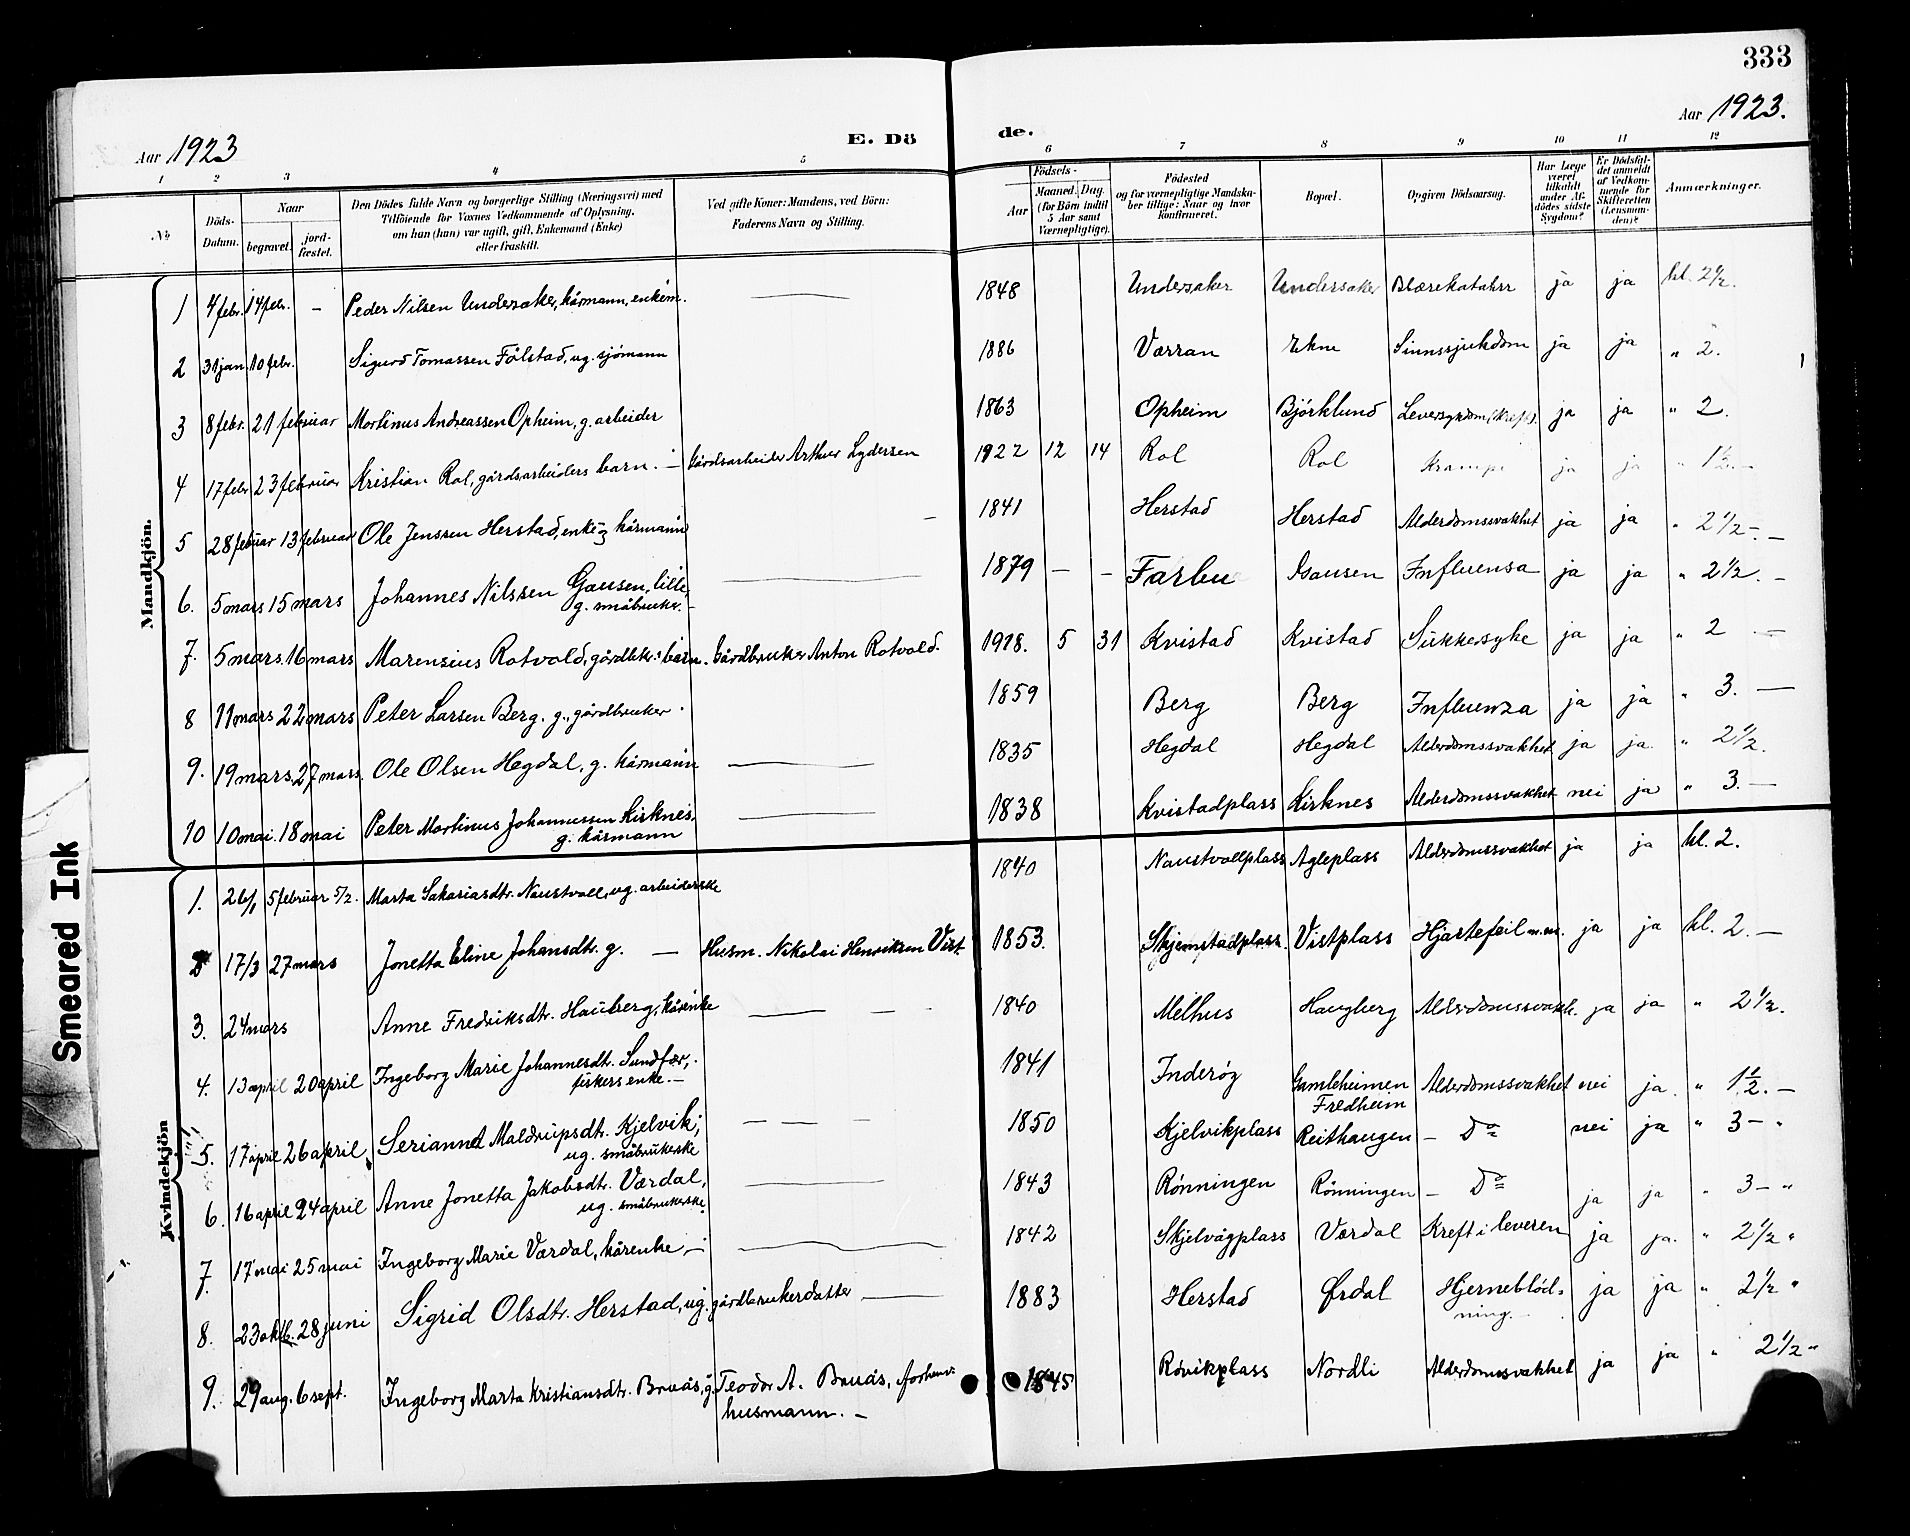 333
Aar 1923
E. Dö
de.
Aar 1923.
1 2 3 4 5 6 7 8 9 10 11 12
№
Döds-Datum.
Naar
begravet.
jord-fæstet.
Den Dödes fulde Navn og borgerlige Stilling (Næringsvei) med
Tilföiende for Voxnes Vedkommende af Oplysning,
om han (hun) var ugift, gift, Enkemand (Enke)
eller fraskilt.
Ved gifte Koner: Mandens, ved Börn:
Faderens Navn og Stilling.
Födsels-
Aar
Maaned. Dag.
(for Börn indtil
5 Aar samt
Værnepligtige).
Födested
og for værnepligtige Mandska-
ber tillige: Naar og hvor
konfirmeret.
Bopæl.
Opgiven Dödsaarsag.
Har Læge
været
tilkaldt
under Af-
dödes sidste
Sygdom?
Er Dödsfal-
det anmeldt
af Vedkom-
mende for
Skifteretten
(Lensman-
den)?
Anmærkninger.
Mandkjön.
1 4 febr. 14 febr. – Peder Nilsen Undersaker, kårmann, enkem. 1848 Undersaker Undersaker Blærekatahrr ja ja kl. 2½.
2 31 jan. 10 febr. Sigurd Tomassen Fólstad, ug. sjómann 1886 Værran Ekne Sinnssjukdom ja ja " 2.
3 8 febr. 21 februar Martinus Andreassen Opheim, g. arbeider 1863 Opheim Bjórklund Leversykdom (kreft). ja ja " 2.
4 17 febr. 23 februar Kristian Rol, gårdsarbeiders barn. – Gårdsarbeider Arthur Lydersen 1922 12 14 Rol Rol Krampe ja ja " 1½.–
5 28 februar 13 februar Ole Jenssen Herstad, enke- kårmann – 1841 Herstad Herstad Alderdomssvakhet ja ja " 2½–.–
6. 5 mars 15 mars Johannes Nilssen Gausen, lille,
g. småbruker. – 1879 – – Farbu Gausen Influensa ja ja " 2½. –
7. 5 mars. 16 mars Marensius Rotvold, gårdbkr.s barn. Gårdbruker Anton Rotvold. 1918. 5 31 Kvistad Kvistad Sukkersyke ja ja " 2 –
8 11 mars 22 mars Peter Larsen Berg. g., gårdbruker 1859 Berg Berg Influenza ja ja " 3. –
9. 19 mars. 27 mars. Ole Olsen Hegdal, g. kårmann 1835 Hegdal Hegdal Alderdomssvakhet ja ja. " 2½.
10 10 mai. 18 mai Peter Martinus Johannessen Kirknes,
g. kårmann 1838 Kvistadplass Kirknes Alderdomssvakhet nei ja " 3. –
Kvindekjön
1. 26/1 5 februar 5/2. Marta Sakariasdtr. Naustvoll, ug. arbeiderske 1840 Naustvollplass Agleplass Alderdomssvakhet ja ja kl. 2.
2 17/3 27 mars Jonetta Eline Johansdtr. g. – Husm. Nikolai Henriksen Vist. 1853. Skjemstadplass. Vistplass Hjartefeil m.m. ja ja kl. 2. –
3. 24 mars Anne Fredriksdtr. Hauberg, kårenke 1840 Melhus Haugberg Alderdomssvakh. ja ja " 2½.
4. 13 april 20 april Ingeborg Marie Johannesdtr. Sundfær,
fiskers enke. – 1841 Inderøy Gamleheimen
Fredheim Alderdomssvakhet nei ja. " 1½. –
5. 17 april 26 april Serianna Maldrupsdt. Kjelvik,
ug. småbrukerske 1850 Kjelvikplass Reithaugen – Do nei ja " 3 – "
6. 16 april 24 april Anne Jonetta Jakobsdtr. Værdal,
ug. småbrukerske. 1843 Rónningen Rónningen – Do ja ja " 3 – "
7. 17 mai 25 mai Ingeborg Marie Værdal, kårenke – 1842 Skjelvågplass Værdal Kreft i leveren ja ja. " 2½ "
8. 23 28 juni Sigrid Olsdtr. Herstad, ug. gårdbrukerdatter – 1883 Herstad Ørdal Hjerneblód-
ning. – ja ja " 2½ "
9. 29 aug. 6 sept. Ingeborg Marta Kristiansdtr. Bruås, g. Teodor A. Bruås, forhenv.
husmann. – 1845 Róvikplass Nordli Alderdomssvakhet ja ja " 2½ "
Smeared Ink